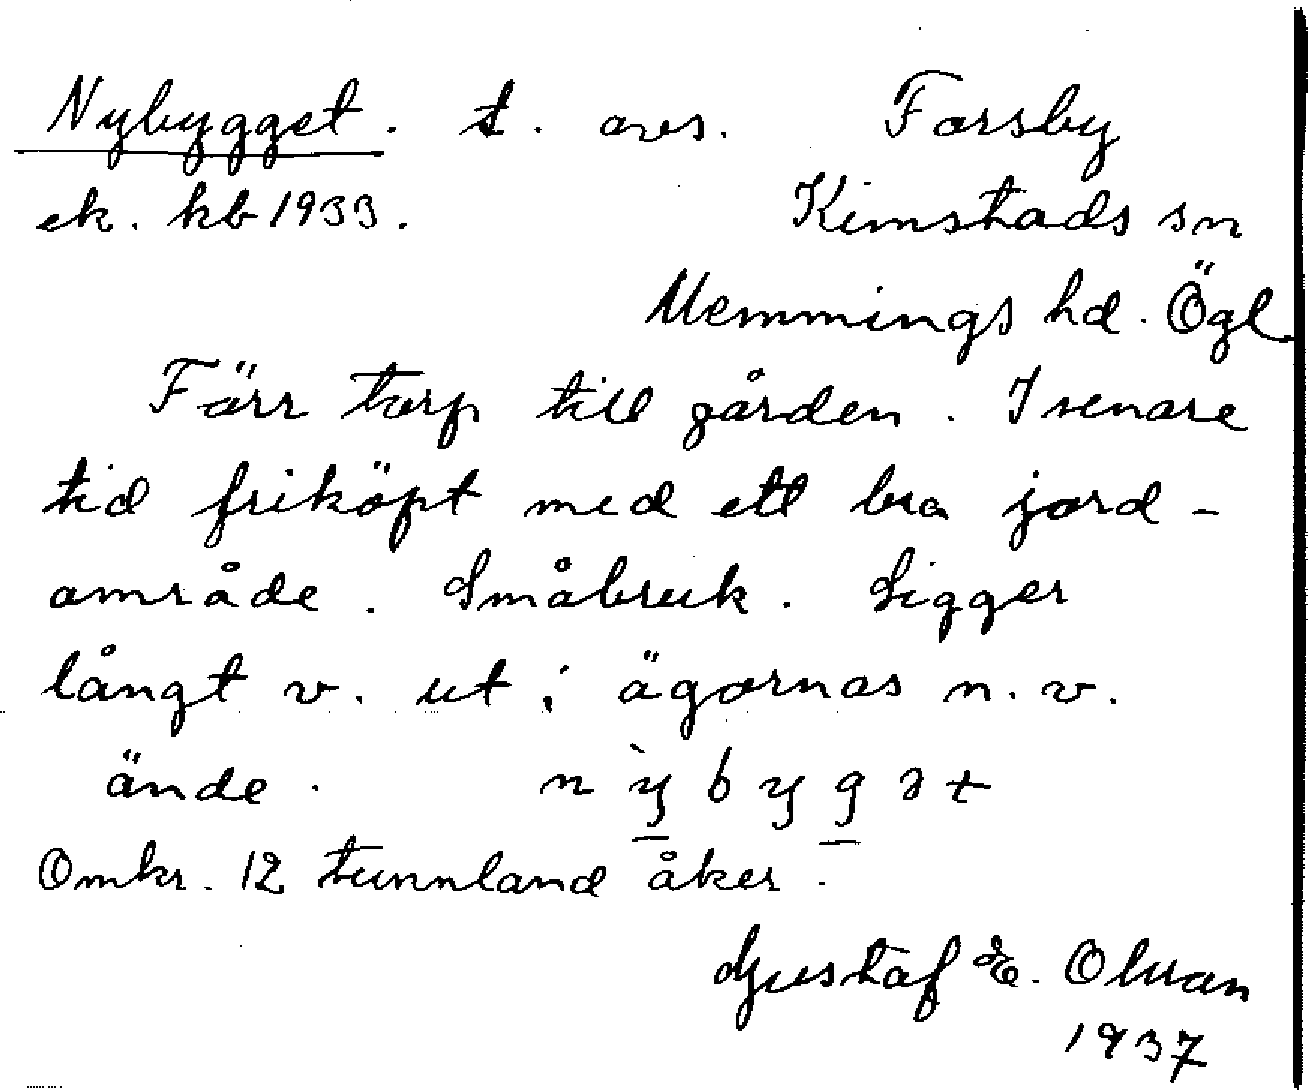 Nybygget. t. avs. Forsby
ek. kb 1933. Kimstads sn
Memmings hd. Ögl
Förr torp till gården. I senare
tid friköpt med ett bra jord-
område. Småbruk. Ligger
långt v. ut i ägornas n. v.
ände. nỳbygət
Omkr. 12 tunnland åker.
Gustaf E. Olsson
1937